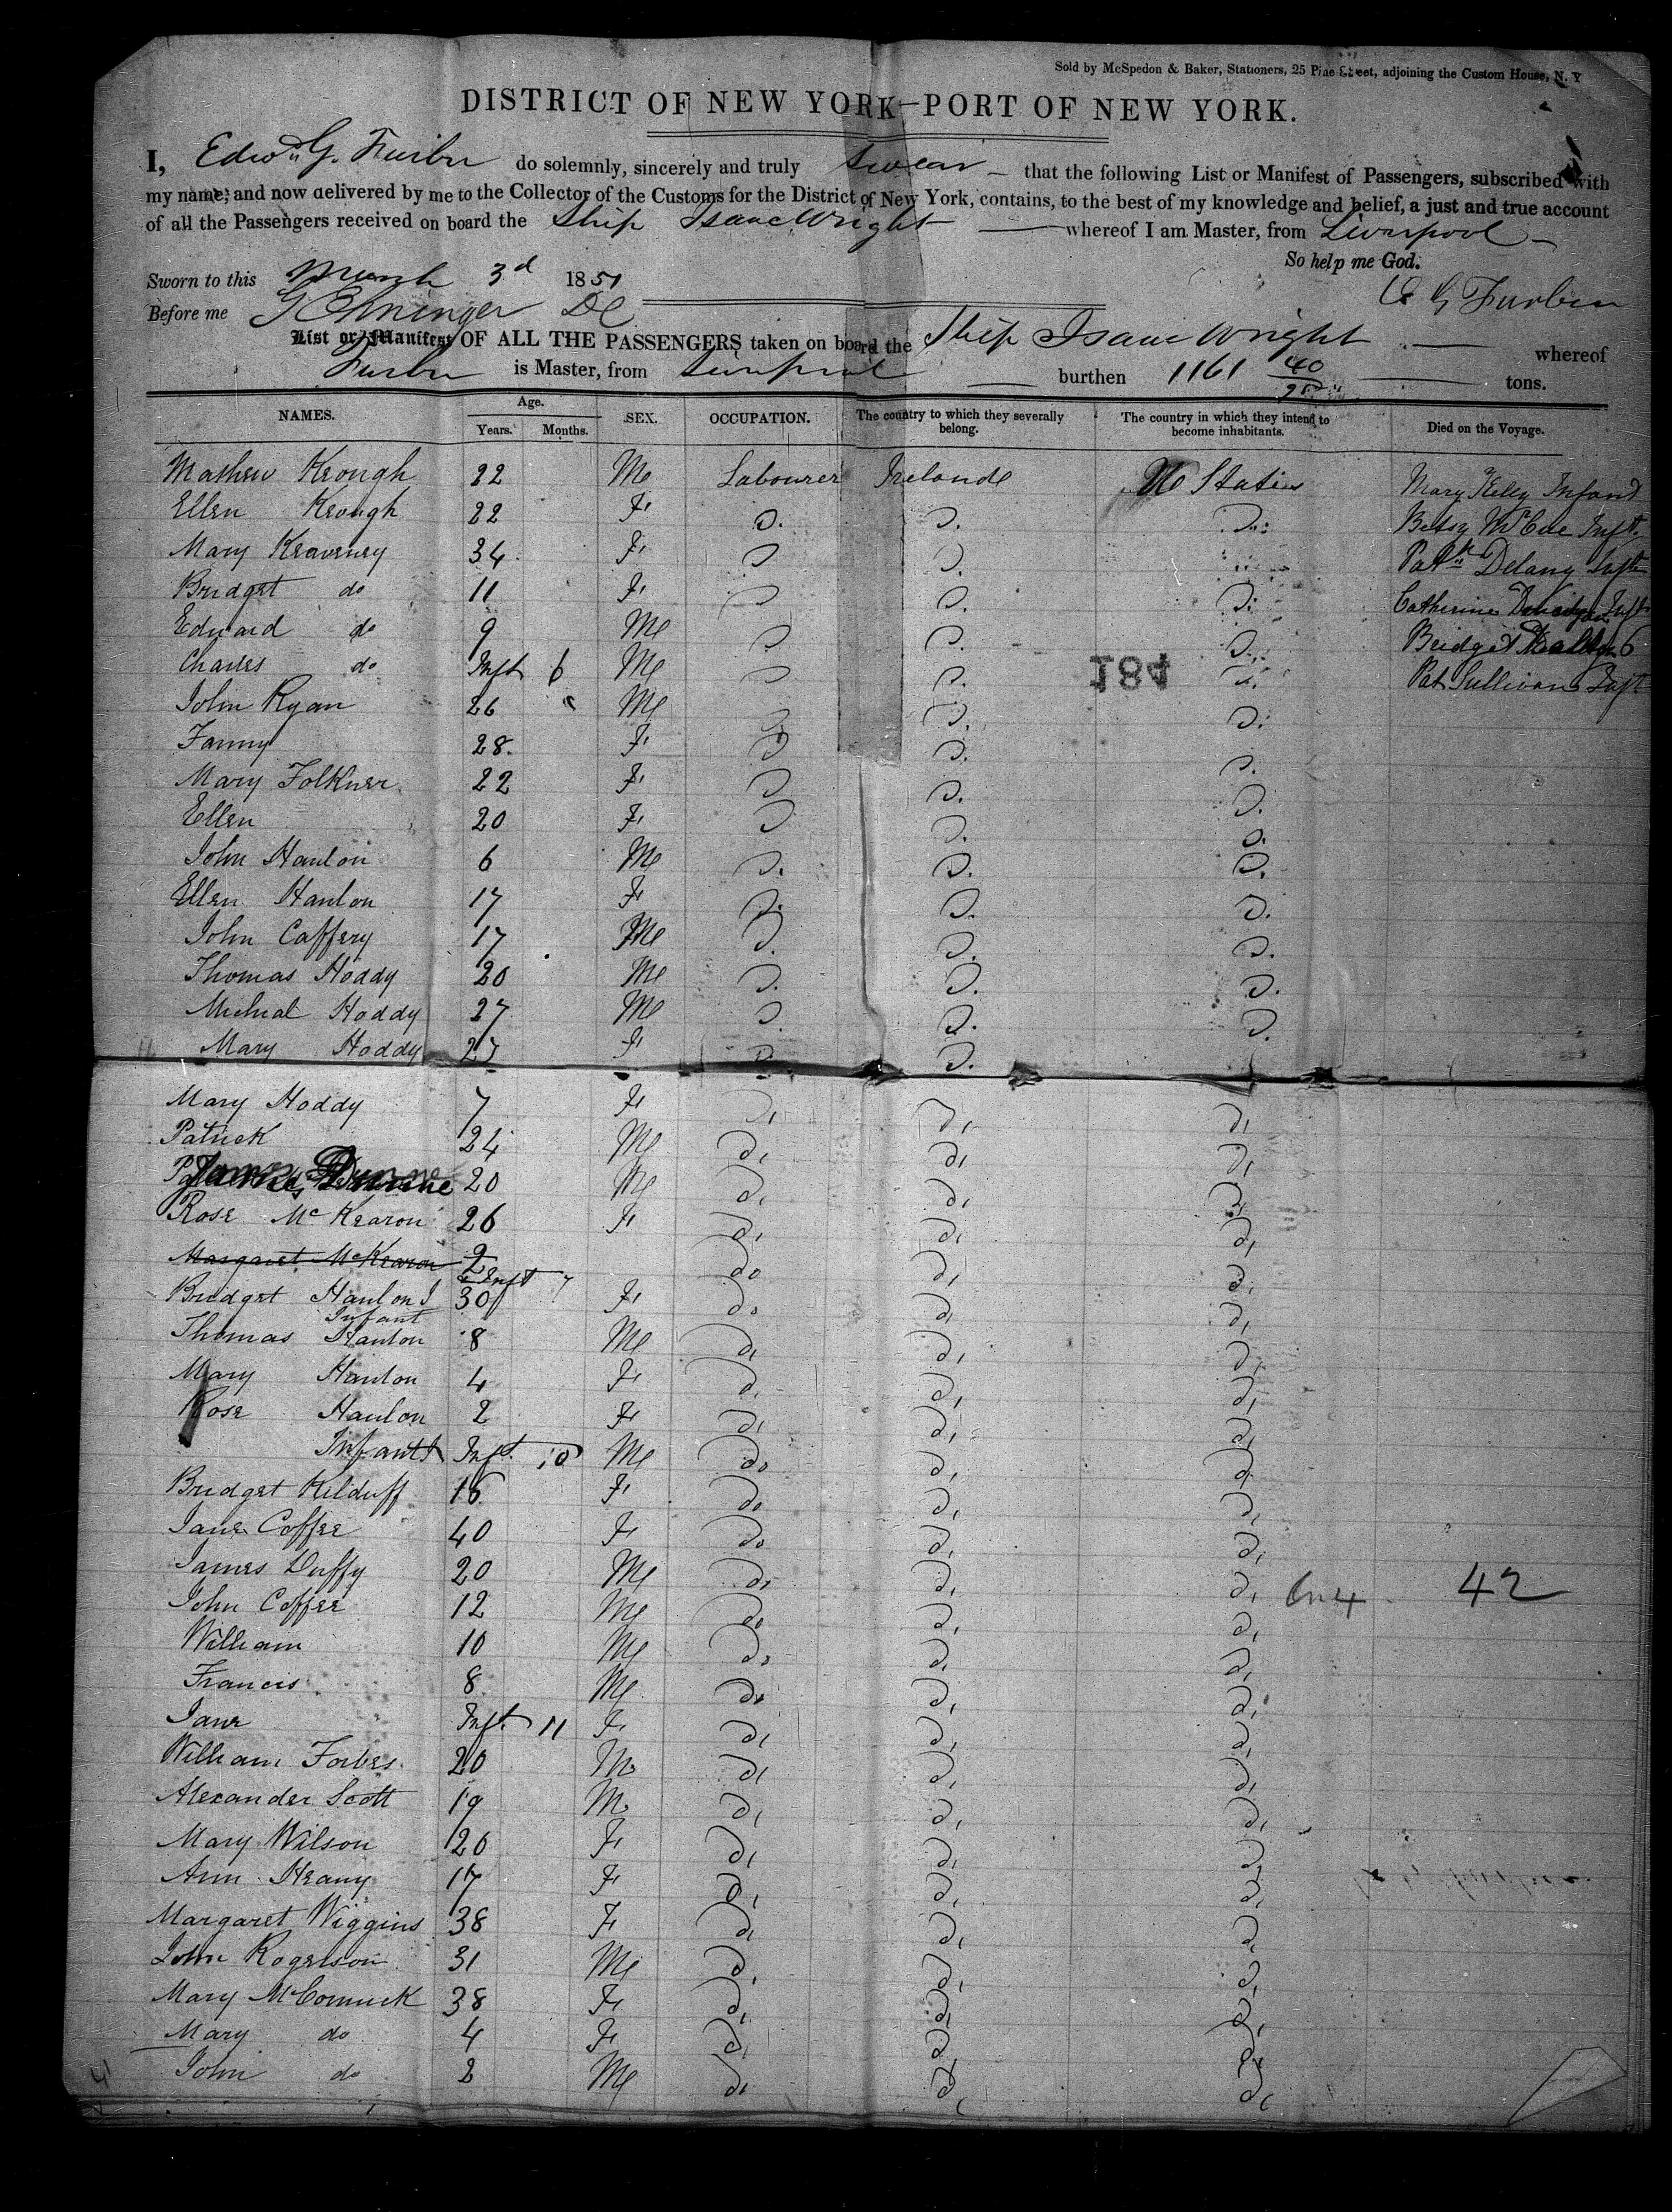 Sold by McSpedon & Baker, Stationers, 25 Pine Street, adjoining the Custom House, N. Y
DISTRICT OF NEW YORK—PORT OF NEW YORK.
I, Edwd G. Furber do solemnly, sincerely and truly swear — that the following List or Manifest of Passengers, subscribed with
my name, and now delivered by me to the Collector of the Customs for the District of New York, contains, to the best of my knowledge and belief, a just and true account
of all the Passengers received on board the Ship Isaac Wright whereof I am Master, from Liverpool
So help me God.
Sworn to this March 3d 1851
E G Furber
Before me
List or Manifest OF ALL THE PASSENGERS taken on board the Ship Isaac Wright whereof
Furber is Master, from Liverpool burthen 1161 tons.
NAMES. Age. Years. Months. SEX. OCCUPATION. The country to which they severally belong. The country in which they intend to become inhabitants. Died on the Voyage.
Mathew Keough 22 M Labourer Irelande U States Mary Kelly Infant
Ellen Keough 22 F D. D. D. Betsy McCue Inft.
Mary Keaveney 34 F D D. Patk Delany Inft
Bridget do 11 F D D. D. Catherine Inft
Edward do 9 M D D. D. Bridget 6
Charles do Inft 6 M D D. 184 D. Pat Sullivan Inft
John Ryan 26 M D D. D.
Fanny 28. F D D. D.
Mary Folkner 22 F D D. D.
Ellen 20 F D D. D.
John Hanlon 6 M D. D. D.
Ellen Hanlon 17 F D. D. D.
John Caffery 17 M D. D. D.
Thomas Hoddy 20 M D. D. D.
Micheal Hoddy 27 M D. D. D.
Mary Hoddy 27 F D. D.
Mary Hoddy 7 F D, D, d,
Patrick 24 M d, d, d,
James Dunne 20 M d, d, d,
Rose McKearon 26 F d, d, d,
Margaret McKearon 2 do d, d,
Inft 7
Bridget Hanlon 30 F do d, d,
Infant
Thomas Hanlon 8 M d, d, d,
Mary Hanlon 4 F d, d, d,
Rose Hanlon 2 F d, d, d,
Infant Inft. 10 M do d, d
Bridget Kilduff 16 F do d, d,
Jane Coffee 40 F do d, d,
James Duffy 20 M d, d, d, 42
John Coffee 12 M do d, d,
William 10 M do d, d,
Francis 8 M do d, d,
Jane Inft. 11 F d, d, d,
William Forbes 20 M d, d, d,
Alexander Scott 19 M d, d, d,
Mary Wilson 20 F d, d, d,
Ann Heany 17 F d, d, d,
Margaret Wiggins 38 F d, d, d,
John Rogerson 31 M d, d, d,
Mary McCormick 38 F d, d, d,
Mary do 4 F d, d, d,
John do 2 M d, d, d,